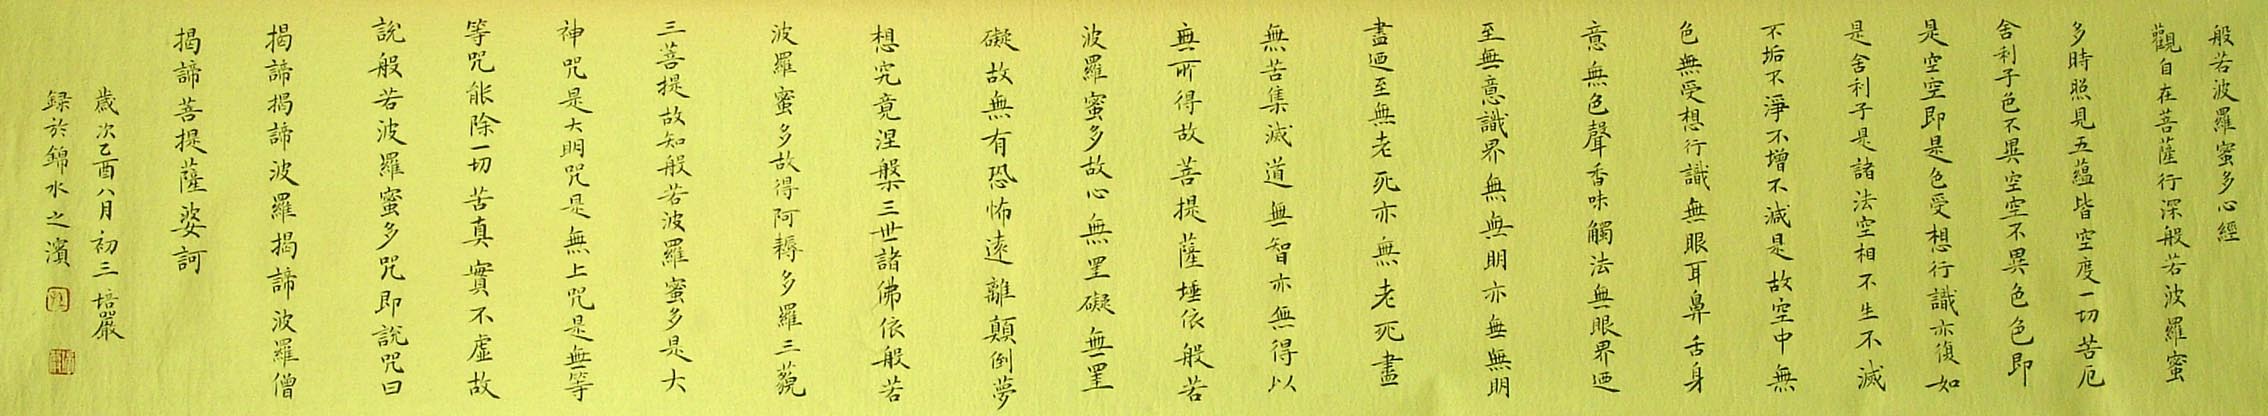 般若波羅蜜多心經
觀自在菩薩行深般若波羅蜜
多時照見五蘊皆空度一切苦厄
舍利子色不異空空不異色色即
是空空即是色受想行識亦復如
是舍利子是諸法空相不生不滅
不垢不淨不增不減是故空中無
色無受想行識無眼耳鼻舌身
意無色聲香味觸法無眼界迺
至無意識界無無明亦無無明
盡迺至無老死亦無老死盡
無苦集滅道無智亦無得以
無所得故菩提薩埵依般若
波羅蜜多故心無罣礙無罣
礙故無有恐怖遠離顛倒夢
想究竟涅槃三世諸佛依般若
波羅蜜多故得阿耨多羅三藐
三菩提故知般若波羅蜜多是大
神咒是大明咒是無上咒是無等
等咒能除一切苦真實不虛故
說般若波羅蜜多咒即說咒曰
揭諦揭諦波羅揭諦波羅僧
揭諦菩提薩婆訶
歲次乙酉八月初三培嚴
録於錦水之濱